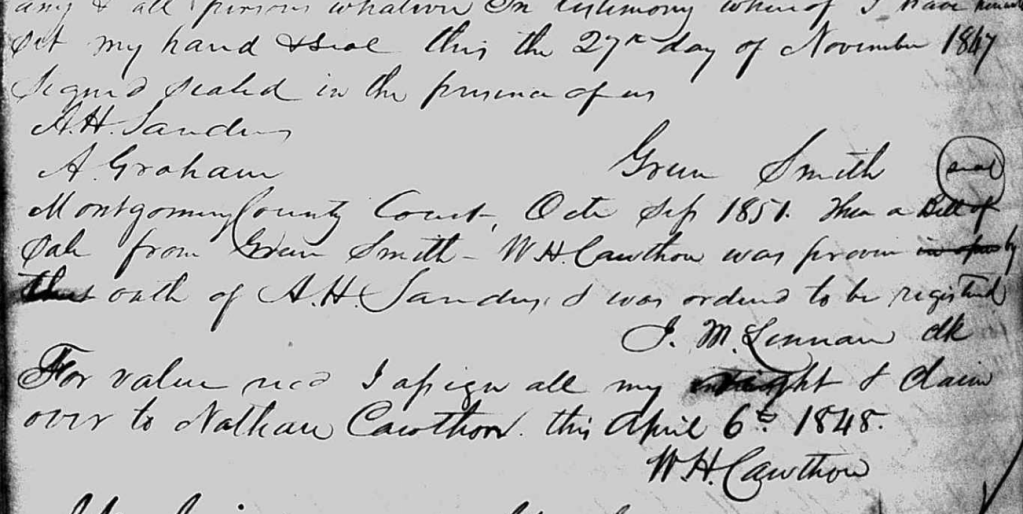 any & all persons whatever In testimony whereof I have
Set my hand & seal this the 27th day of November 1847
Signed sealed in the presence of us
A.H. Sanders
A. Graham Green Smith seal
Montgomery County Court, Octr Sefs 1851. Then a Bill of
Sale from Green Smith - W H Cawthon was proven by
oath of A.H. Sanders, & was ordered to be registered
clk
For value recd I assign all my right & claim
over to Nathan Cawthon. this April 6th 1848.
W.H. Cawthon